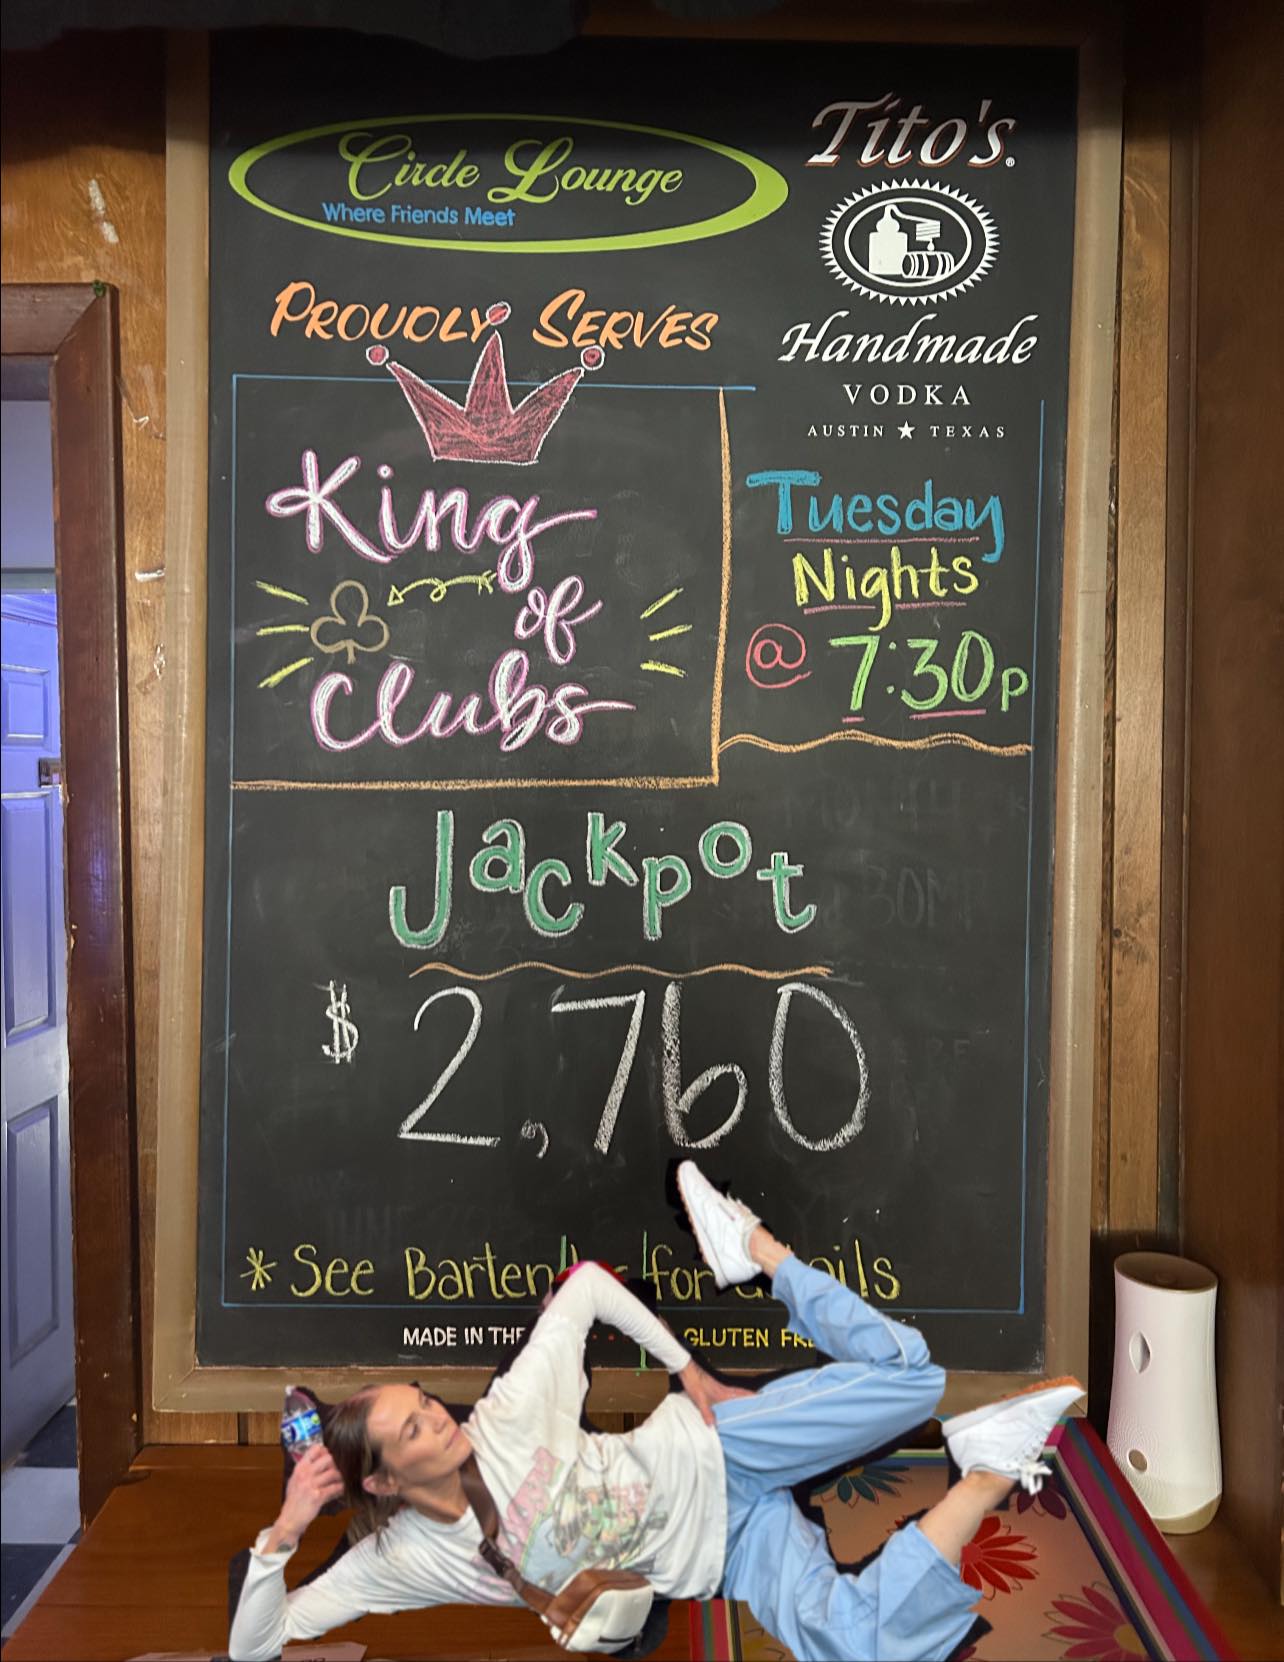 Circle Lounge
Where Friends Meet
Tito's
Handmade
VODKA
AUSTIN ★ TEXAS
PROUDLY SERVES
King
of
Clubs
Tuesday
Nights
@ 7:30p
Jackpot
$ 2,760
* See for
MADE IN THE GLUTEN